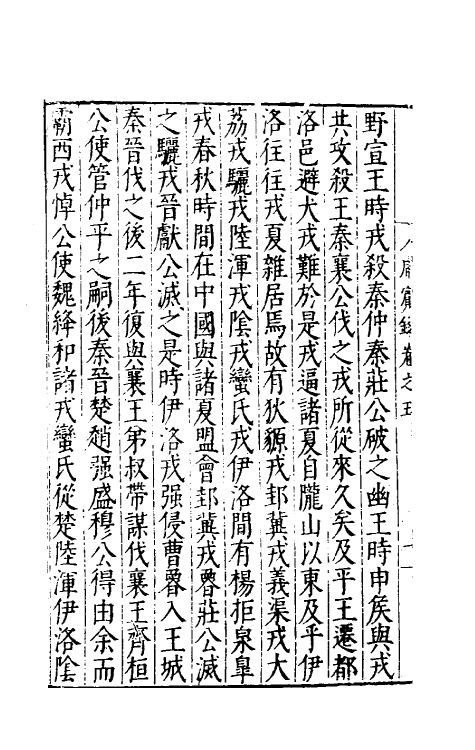 野宣王時戎殺秦仲秦莊公破之幽王時申矦與戎
共攻殺王秦襄公伐之戎所從來久矣及平王遷都
洛邑避犬戎難於是戎逼諸夏自隴山以東及乎伊
洛往往戎夏雜居焉故有狄䝠戎邽冀戎義渠戎大
荔戎驪戎陸渾戎陰戎蠻氏戎伊洛間有楊拒泉皐
戎春秋時間在中國與諸夏盟會邽冀戎魯莊公滅
之驪戎晉獻公滅之是時伊洛戎强侵曹魯入王城
秦晉伐之後二年復與襄王弟叔帶謀伐襄王齊桓
公使管仲平之嗣後秦晉楚趙强盛穆公得由余而
霸西戎悼公使魏絳和諸戎蠻氏從楚陸渾伊洛陰
卷之五